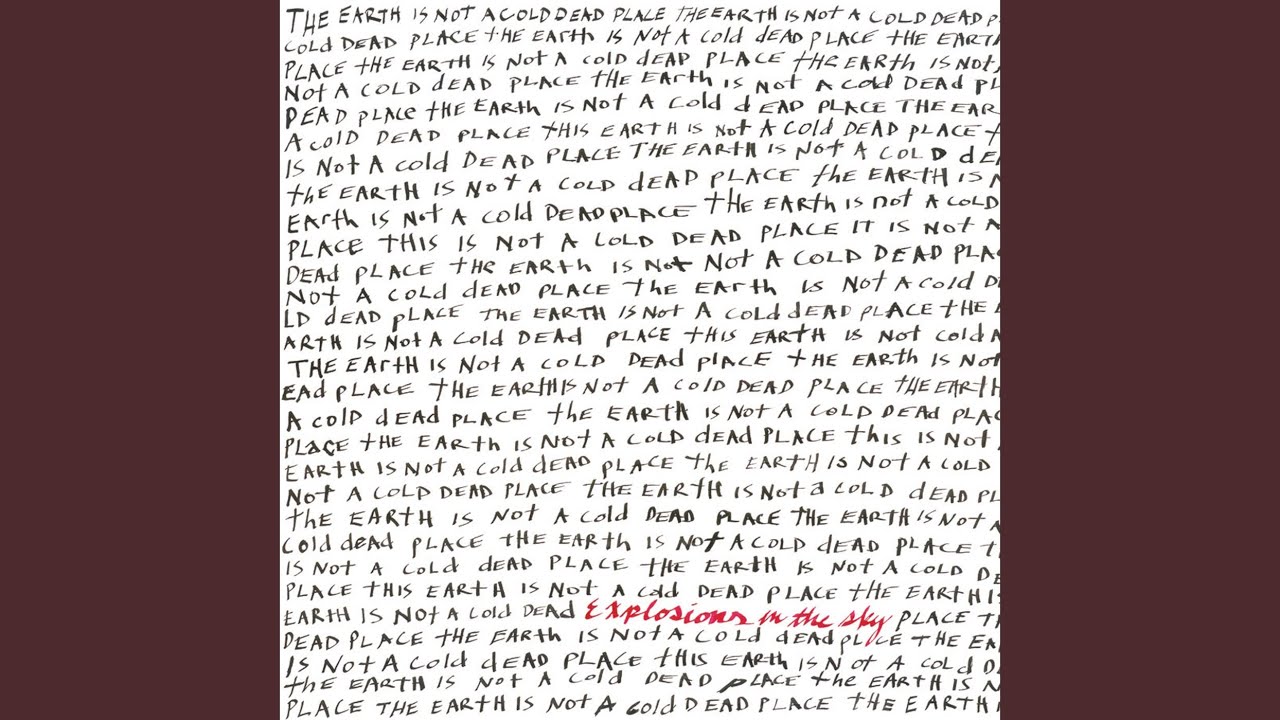 THE EARTH IS NOT A COLD DEAD PLACE THE EARTH IS NOT A COLD DEAD P
COLD DEAD PLACE tHE EARth IS Not A Cold dEAD PLACE tHE EARTH
PLACE tHE EARTH IS Not A cold dEAD PLACE tHE EARth IS Not,
Not A COLD dEAD PLACE tHE EARth IS Not A Cold DEAd PL
DEAD PLACE tHE EARth IS Not A Cold dEAD PLACE THE EAR
A Cold DEAD PLACE tHIS EARTH IS Not A Cold DEAD PLACE t
IS Not A cold DEAD PLACE THE EARth IS Not A COLD dE
thE EARtH IS Not A COLD dEAD PLACE thE EARTH IS N
EARth IS Not A cold DEAD PLACE tHE EARth IS not A COLD
PLACE tHIS IS Not A COLD DEAD PLACE IT IS Not A
DEAd PLACE tHE EARth IS Not Not A COLD DEAD PLA
Not A COLd dEAD PLACE thE EARth IS Not A Cold D
LD dEAD PLACE THE EARTH IS Not A Cold dEAD PLACE tHE
ARTH IS Not A Cold DEAd PLACE tHIS EARTH IS Not Cold A
THE EARtH IS Not A COLD DEAd PlACE tHE EARth IS Not
EAd PLACE tHE EARtH IS Not A COLD DEAD PLACE tHE EARtH
A Cold dEAd PLACE thE EARTH IS Not A COLD DEAd PLAC
PLACE tHE EARth IS Not A COLD dEAd PLACE thIS IS Not
EARTH IS Not A Cold dEAD PLACE thE EARTH IS Not A COLD
Not A COLD DEAD PLACE tHE EARTH IS Not a COLD dEAD PL
thE EARTH IS Not A Cold DEAD PLACE THE EARTH IS Not A
COld dEAd PLACE tHE EARth IS Not A COLD dEAD PLACE t
IS Not A Cold dEAD PLACE tHE EARtH IS Not A COLD DE
PLACE tHIS EARtH IS Not A Cold DEAD PLACE tHE EARtH I
EARtH IS Not A Cold DEAD Explosions in the sky PLACE T
DEAD PLACE tHE EARth IS Not A COLD dEAd PLACE tHE EA
IS Not A Cold dEAD PLACE tHIS EARth IS Not A Cold D
thE EARTH IS Not A Cold DEAD PLACE thE EARtH IS N
PLACE THE EARTH IS Not A Cold DEAD PLACE tHE EARtH